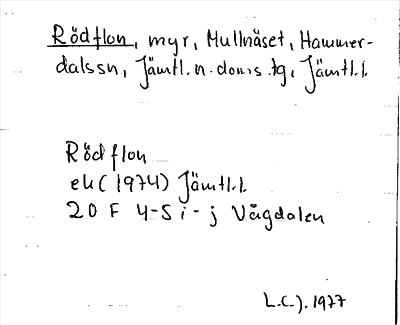 Rödflon, myr, Mullnäset, Hammer-
dalssn, Jämtl. n. doms. tg, Jämtl. l.
Rödflon
ek (1974) Jämtl. l.
20 F 4-5 i - j Vågdalen
L.C.J. 1977